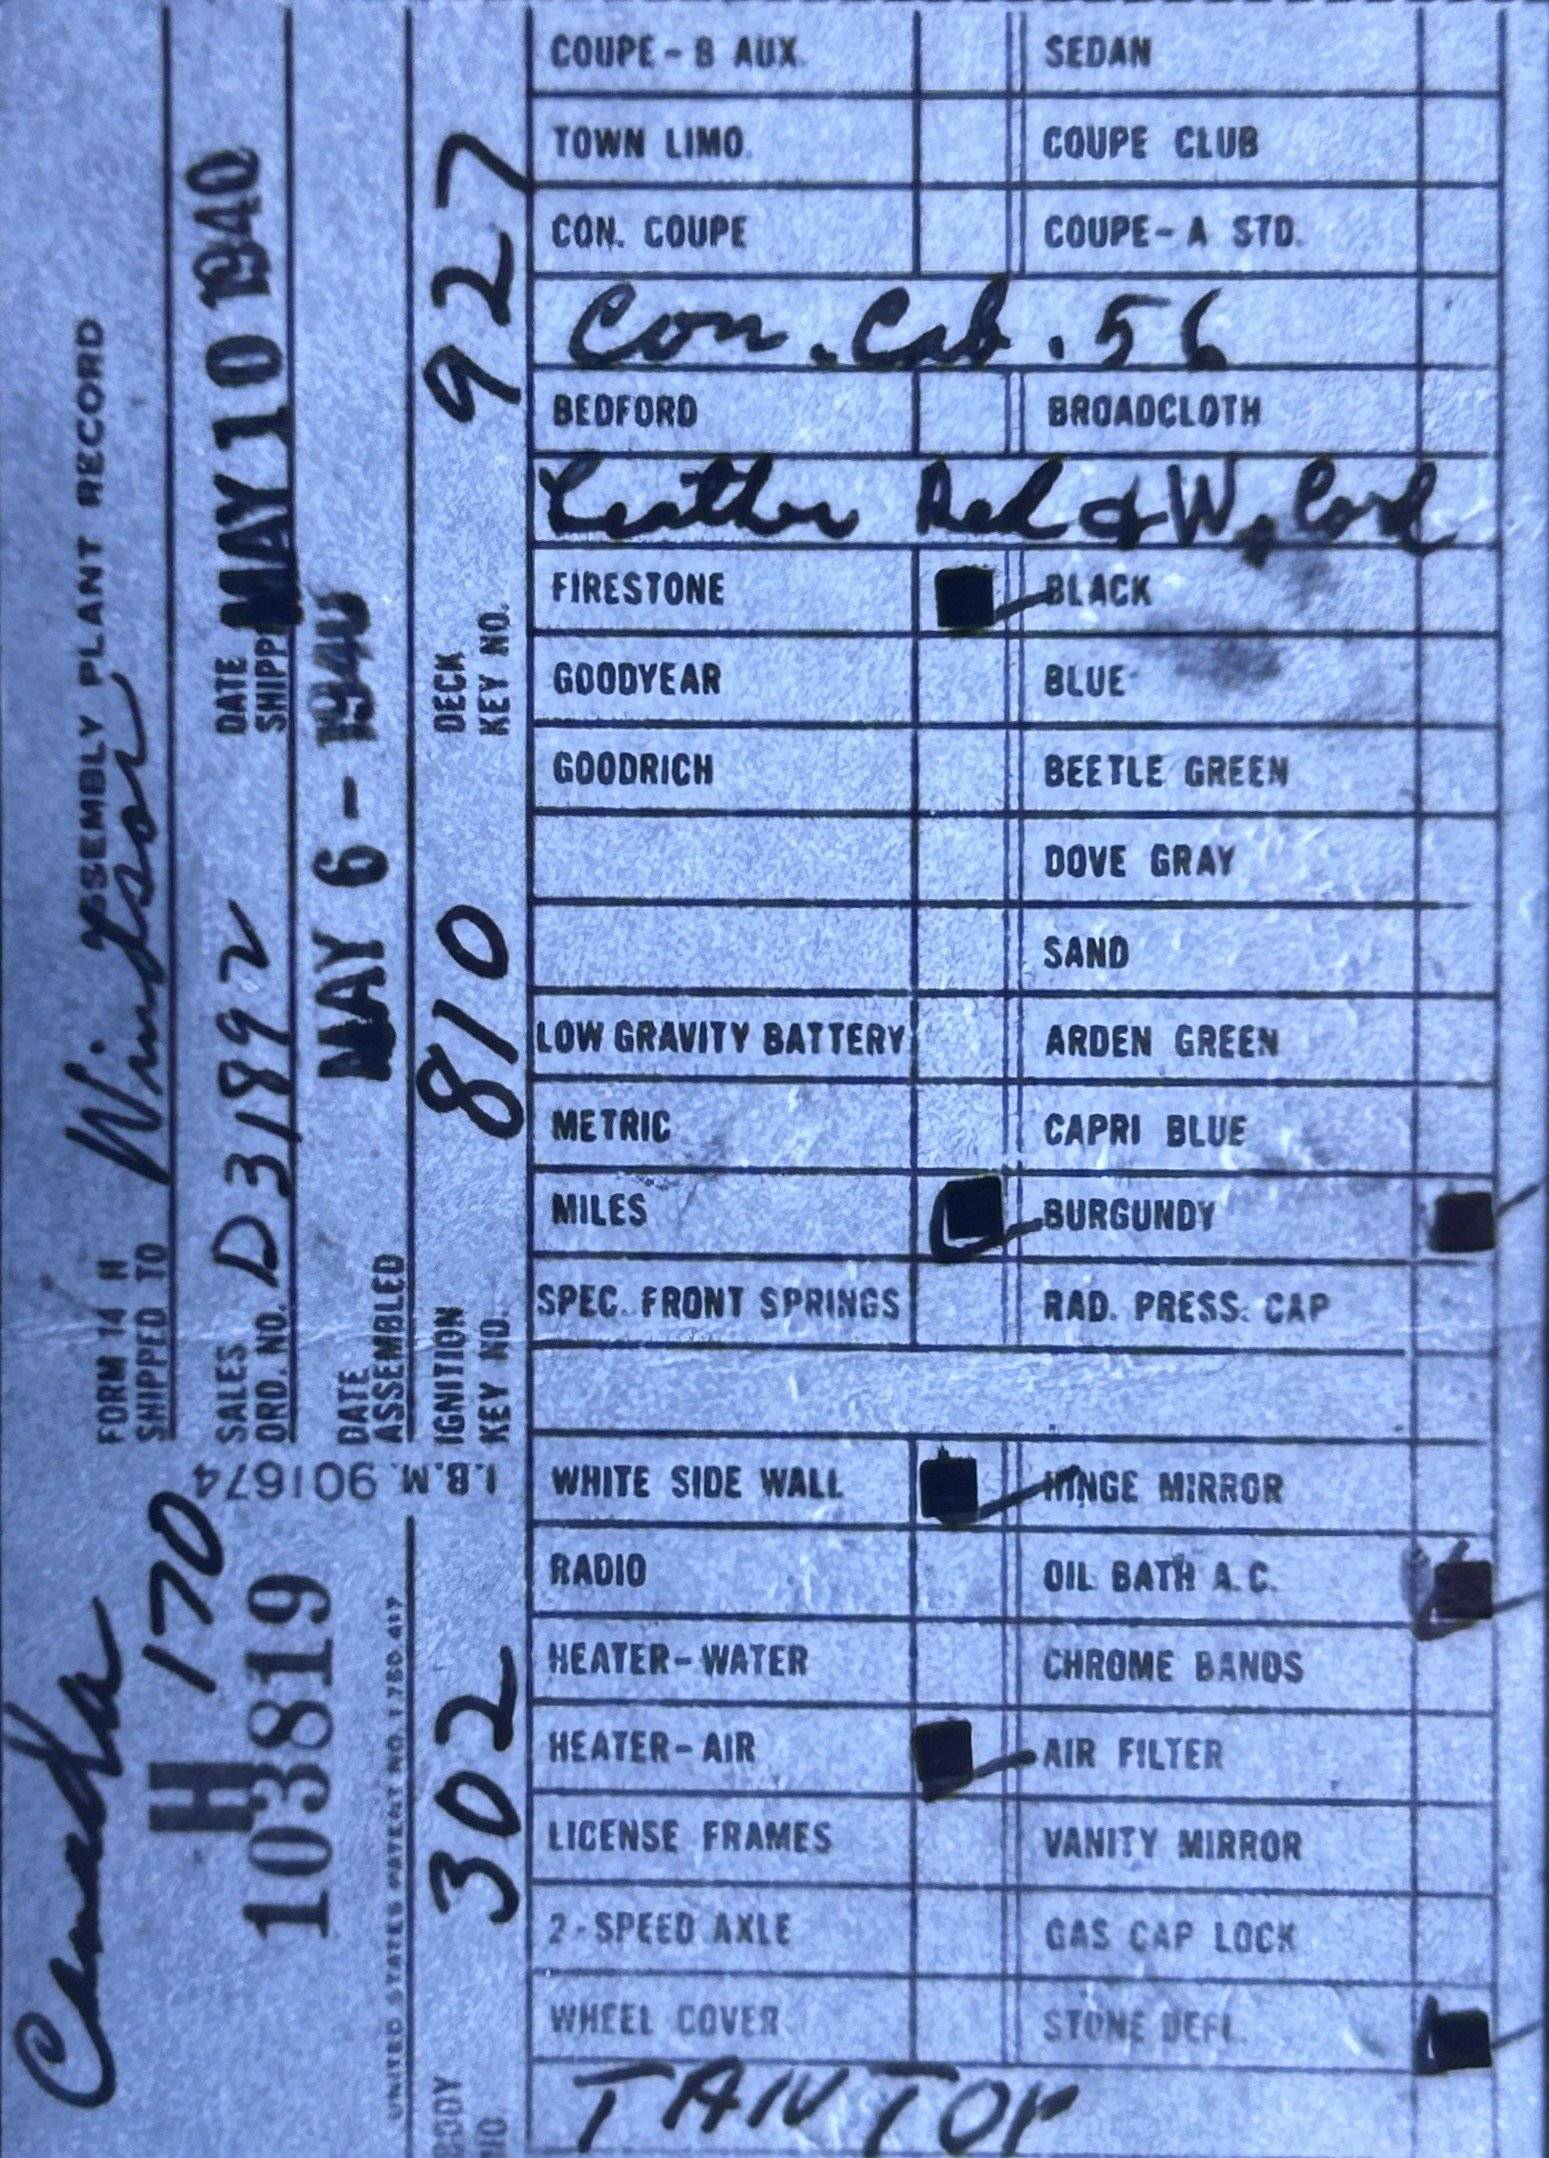 FORM 14 H ASSEMBLY PLANT RECORD
SHIPPED TO Windsor
SALES ORD. NO. D 31892
DATE SHIPP MAY 10 1940
DATE ASSEMBLED MAY 6 - 1940
IGNITION KEY NO. 810
DECK KEY NO. 927
Canada
H 170
103819
I.B.M. 901674
UNITED STATES PATENT NO. 1,780,417
BODY NO 302
COUPE - B AUX. SEDAN
TOWN LIMO. COUPE CLUB
CON. COUPE COUPE - A STD.
Con. Cab. 56
BEDFORD BROADCLOTH
Leather Red & W. Cord
FIRESTONE BLACK
GOODYEAR BLUE
GOODRICH BEETLE GREEN
DOVE GRAY
SAND
LOW GRAVITY BATTERY ARDEN GREEN
METRIC CAPRI BLUE
MILES BURGUNDY
SPEC. FRONT SPRINGS RAD. PRESS. CAP
WHITE SIDE WALL HINGE MIRROR
RADIO OIL BATH A.C.
HEATER - WATER CHROME BANDS
HEATER - AIR AIR FILTER
LICENSE FRAMES VANITY MIRROR
2 - SPEED AXLE GAS CAP LOCK
WHEEL COVER STONE DEFL.
TAN TOP